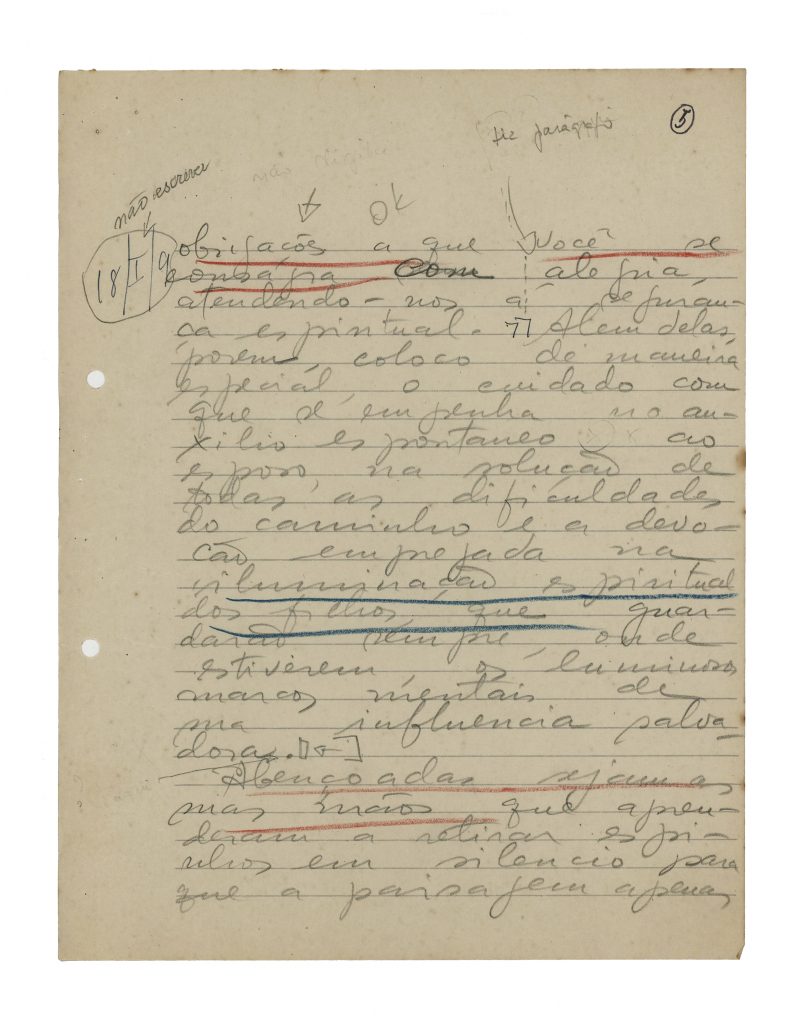 5
parágrafo
não escrever
Ok
18/I/9
obrigações a que você se
consagra com alegria,
atendendo-nos á seguran-
ça espiritual. Alem delas,
porem, coloco de maneira
especial, o cuidado com
que se empenha no au-
xilio espontaneo ao
esposo, na solução de
todas as dificuldades
do caminho e a devo-
ção empregada na
iluminação espiritual
dos filhos, que guar-
darão sempre, onde
estiverem, os luminosos
marcos mentais de
sua influencia salva-
dora.
Abençoadas sejam as
suas mãos que apren-
deram a retirar espi-
nhos em silencio para
que a paisagem apenas